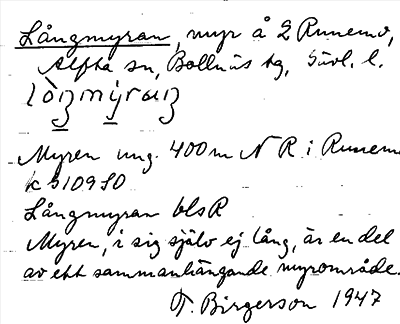 Långmyran, myr å 2 Runemo,
Alfta sn, Bollnäs tg, Gävl. l.
Myren ung. 400 m N R i Runemo
k 310980
Långmyran bls R
Myren, i sig själv ej lång, är en del
av ett sammanhängande myrområde.
T. Birgerson 1947